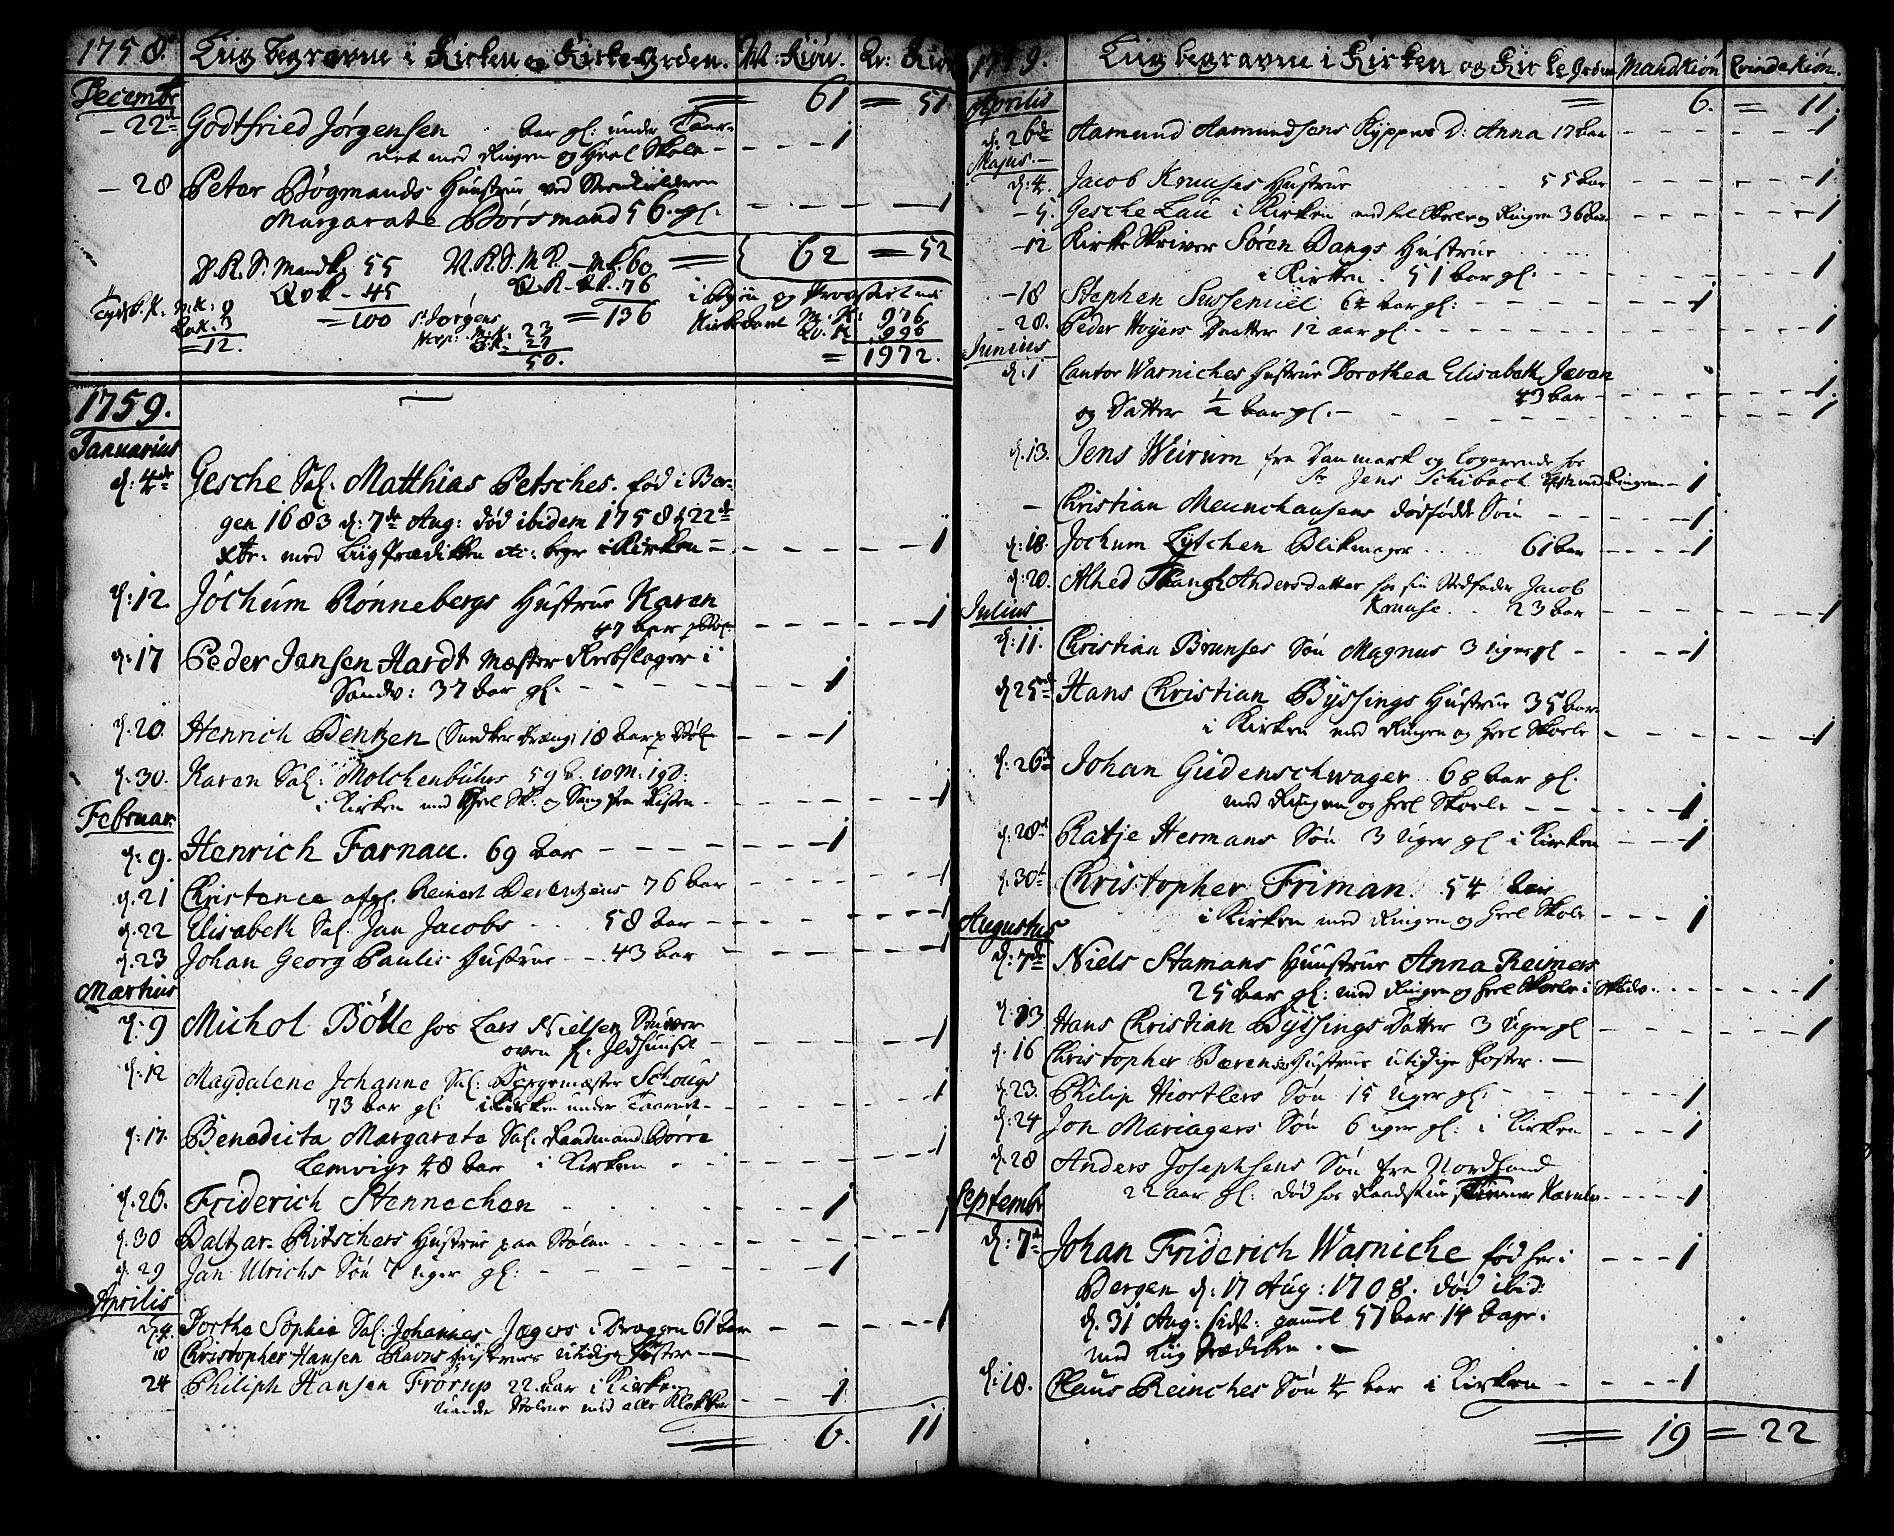 1758. Liig begravne i Kirken og Kirke-Gården. M: Kiön. Qv: Kiön
Decembr == 61 == 51
- 22de Godtfried Jørgensen bar gl: under Taar-
net med Ringen og heel Skole - 1
- 28 Peter Bøgmands Huustrue ved
Margarete Børsmand 56. gl. - 1
62 == 52
D.R.S. Mandk. 55 N.K.S.
Qvk - 45 76
= 100 = 136
Tydsk. K. M:K: 9
QvK. 3
= 12.
St. Jørgens
M:K: 23
Q:K: 27
50.
i Byen og Provstiet udi
M: K: 976
Qv. K 996
= 1972.
1759.
Januarius
d: 4de Gesche Sal. Matthias Petsches. fød i Ber-
gen 1683 d: 7de Aug: død ibidem 1758 d 22de
Xbr. med Liig Prædiken etc: begr i Kirken - 1
d: 12. Jochum Rønnebergs Hustrue Karen
47 aar - 1
d: 17 Peder Jansen Hardt Mæster Rebslager i
Sandv: 37 aar gl. - 1
d. 20. Henrich Bentzen (Snedker Dreng) 18 aar - 1
d. 30. Karen Sal: Molchenbuhrs 59 a. 10 M: 19 D:
i Kirken med heel Sk: og Sang fra Risten - 1
Februar.
d: 9. Henrich Farnau. 69 aar - 1
d. 21 Christence afgl. Reinert 76 aar - 1
d. 22 Elisabeth Sal. Jan Jacobs 58 aar - 1
d. 23 Johan Georg Paulis Hustrue - 43 aar - 1
Martius
d: 9 Michol Bölle hos Lars Nielsen
oven - 1
d: 12 Magdalene Johanne Sal: Borgemæster Schougs
73 aar gl. i Kirken under Taarnet - 1
d: 17. Benedicta Margareta Sal: Raadmand Dorre
Lemvigs 48 aar i Kirken - 1
d. 26. Friderich Stennechen - 1
d. 30 Baltzar Ritschers Hustrue paa Stølen - 1
d. 29 Jan Ulrichs Søn 7 uger gl: - 1
Aprilis
d. 4. Dorthe Sophie Sal: Johannes Jægers i Braggen 61 aar - 1
10 Christopher Hansen Hustrues utidige Foster -
24 Philiph Hansen Frörup 22. aar i Kirken
under Stolene med alle Klokker - 1
== 6. 11
1759. Liig begravne i Kirken og Kirke Gården Mandkiön Qvindekiön.
Aprilis == 6. == 11.
d: 26de Aamund Aamundsens Kyppers D: Anna 17 aar - 1
Majus. -
d: 4. Jacob Knuses Hustrue 55 aar - 1
- 5 Gesche Lau i Kirken med heel Skole og Ringen 36 aar - 1
- 12 Kirke Skriver Søren Dangs Hustrue
i Kirken. 51 aar gl. - 1
- 18 Stephen 64 aar gl: - 1
- 28. Peder Hoyers Daatter 12 aar gl. - 1
Junius
d: 1 Cantor Warniches Hustrue Dorothea Elisabeth
43 aar - 1
og Datter 1/2 aar gl. - 1
d. 13. Jens Weirum fra Danmark og logerende hos
Sr Jens Schibach med Ringen - 1
- Christian Meunchausens dødfødde Søn - 1
d: 18. Jochum Lytchen Blikmager 61 aar - 1
d: 20. Alhed Andersdatter hos sin Stedfader Jacob
Knuse. 23 aar - 1
Julius
d: 11. Christian Brunses Søn Magnus 3 Uger gl - 1
d 25de Hans Christian Byssings Hustrue 35 aar
i Kirken med Ringen og heel Skole - 1
d: 26de Johan Gudenschwager 68 aar gl.
med Ringen og heel Skole - 1
d: 28de Ratje Hermans Søn 3 Uger gl i Kirken - 1
d. 30te Christopher Friman. 54 aar
i Kirken med Ringen og heel Skole - 1
Augustus
d: 7de Niels Stamans Huustrue Anna Reimers
25 aar gl: med Ringen og heel Skole i - 1
d: 13 Hans Christian Byssings Datter 3 Uger gl - 1
d. 16 Christopher Hustrues utidige Foster. -
d. 23. Philip Hiortlers Søn 15 Uger gl: - 1
d: 24 Jon Mariagers Søn 6 uger gl: i Kirken - 1
d. 28 Anders Josephsens Søn fra Nordland
22 aar gl: død hos - 1
Septembr
d: 7de Johan Friderich Warniche fød her i - 1
Bergen d: 17 Aug: 1708. død ibid:
d. 31 Aug: sidst: gammel 51 aar 14 dage.
med Liig Prædiken. -
d: 18. Claus Reinches Søn 4 aar i Kirken - 1
== 19 == 22